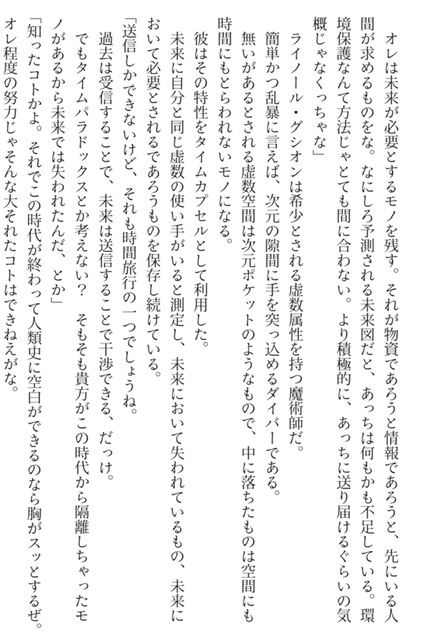 オレは未来が必要とするモノを残す。それが物資であろうと情報であろうと、先にいる人
間が求めるものをな。なにしろ予測される未来図だと、あっちは何もかも不足している。環
境保護なんて方法じゃとても間に合わない。より積極的に、あっちに送り届けるぐらいの気
概じゃなくっちゃな」
　ライノール・グシオンは希少とされる虚数属性を持つ魔術師だ。
　簡単かつ乱暴に言えば、次元の隙間に手を突っ込めるダイバーである。
　無いがあるとされる虚数空間は次元ポケットのようなもので、中に落ちたものは空間にも
時間にもとらわれないモノになる。
　彼はその特性をタイムカプセルとして利用した。
　未来に自分と同じ虚数の使い手がいると測定し、未来において失われているもの、未来に
おいて必要とされるであろうものを保存し続けている。
「送信しかできないけど、それも時間旅行の一つでしょうね。
　過去は受信することで、未来は送信することで干渉できる、だっけ。
　でもタイムパラドックスとか考えない？　そもそも貴方がこの時代から隔離しちゃったモ
ノがあるから未来では失われたんだ、とか」
「知ったコトかよ。それでこの時代が終わって人類史に空白ができるのなら胸がスッとするぜ。
オレ程度の努力じゃそんな大それたコトはできねえがな。